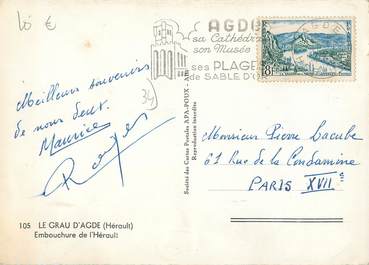 10 €
AGDE
sa Cathédrale
son Musée
ses PLAGES
de SABLE D'O
34
Meilleurs souvenirs
de nous deux.
Maurice
Société des Cartes Postales APA-POUX - Albi
Reproduction interdite
Monsieur Pierre Lacube
61 Rue de la Condamine
PARIS XVIIe
105 LE GRAU D'AGDE (Hérault)
Embouchure de l'Hérault